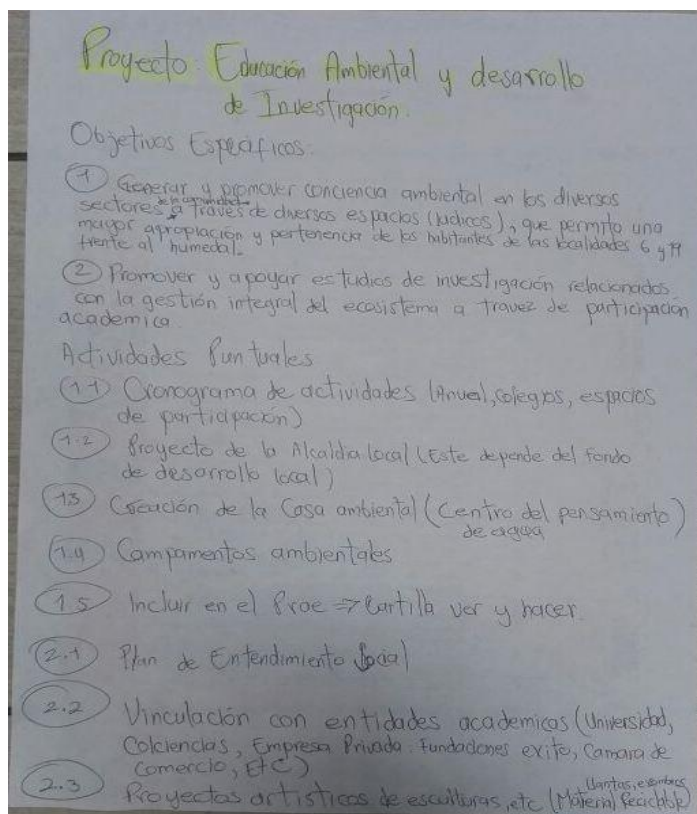 Proyecto: Educación Ambiental y desarrollo
de Investigación.
Objetivos Específicos:
1 Generar y promover conciencia ambiental en los diversos
sectores de la comunidad a través de diversos espacios (ludicos), que permita una
mayor apropiación y pertenencia de los habitantes de las localidades 6 y 19
frente al humedal.
2 Promover y apoyar estudios de investigación relacionados
con la gestión integral del ecosistema a travez de participación
academica.
Actividades Puntuales
1.1 Cronograma de actividades (Anual, colegios, espacios
de participación)
1.2 Proyecto de la Alcaldia local (Este depende del fondo
de desarrollo local)
1.3 Creación de la Casa ambiental (Centro del pensamiento)
de agua
1.4 Campamentos ambientales
1.5 Incluir en el Prae => Cartilla ver y hacer.
2.1 Plan de Entendimiento Social
2.2 Vinculación con entidades academicas (Universidad,
Colciencias, Empresa Privada: Fundaciones exito, Camara de
Comercio, Etc)
2.3 Proyectos artisticos de esculturas, etc (Material Reciclable)
llantas, escombros